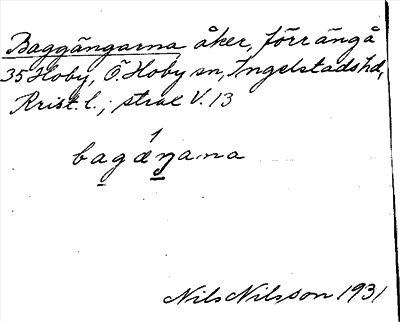 Baggängarna åker, förr ängå
35 Hoby, Ö. Hoby sn, Ingelstads hd,
Krist. l.; strax V. 13
1
bagæŋarna
Nils Nilsson 1931